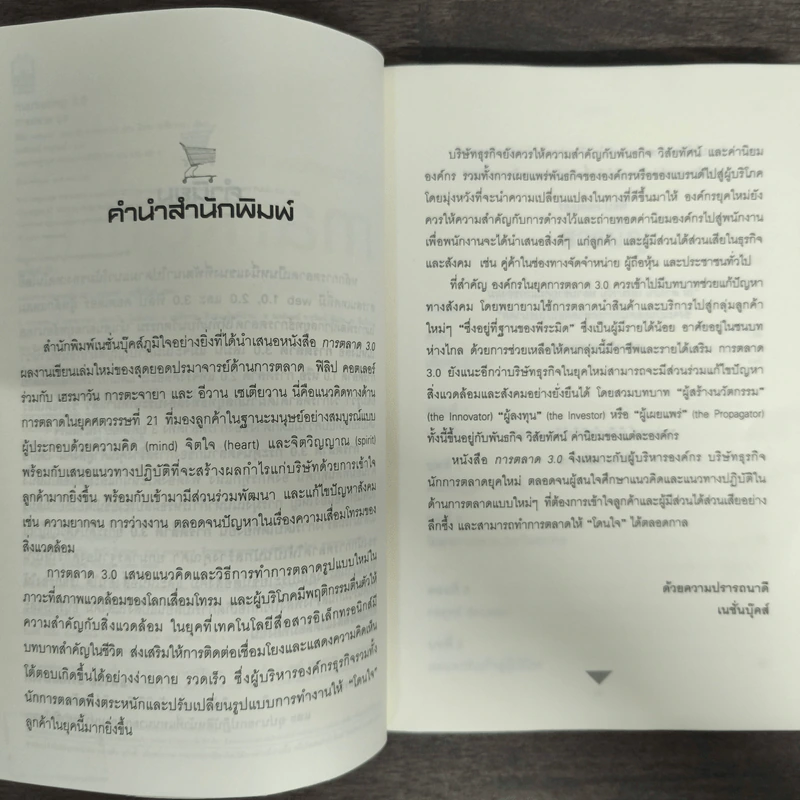 คำนำสำนักพิมพ์
สำนักพิมพ์เนชั่นบุ๊คส์ภูมิใจอย่างยิ่งที่ได้นำเสนอหนังสือ การตลาด 3.0
ผลงานเขียนเล่มใหม่ของสุดยอดปรมาจารย์ด้านการตลาด ฟิลิป คอตเลอร์
ร่วมกับ เฮรมาวัน การตะจายา และ อีวาน เซเตียวาน นี่คือแนวคิดทางด้าน
การตลาดในยุคศตวรรษที่ 21 ที่มองลูกค้าในฐานะมนุษย์อย่างสมบูรณ์แบบ
ผู้ประกอบด้วยความคิด (mind) จิตใจ (heart) และจิตวิญญาณ (spirit)
พร้อมกับเสนอแนวทางปฏิบัติที่จะสร้างผลกำไรแก่บริษัทด้วยการเข้าใจ
ลูกค้ามากยิ่งขึ้น พร้อมกับเข้ามามีส่วนร่วมพัฒนา และแก้ไขปัญหาสังคม
เช่น ความยากจน การว่างงาน ตลอดจนปัญหาในเรื่องความเสื่อมโทรมของ
สิ่งแวดล้อม
การตลาด 3.0 เสนอแนวคิดและวิธีการทำการตลาดรูปแบบใหม่ใน
ภาวะที่สภาพแวดล้อมของโลกเสื่อมโทรม และผู้บริโภคมีพฤติกรรมตื่นตัวให้
ความสำคัญกับสิ่งแวดล้อม ในยุคที่เทคโนโลยีสื่อสารอิเล็กทรอนิกส์มี
บทบาทสำคัญในชีวิต ส่งเสริมให้การติดต่อเชื่อมโยงและแสดงความคิดเห็น
โต้ตอบเกิดขึ้นได้อย่างง่ายดาย รวดเร็ว ซึ่งผู้บริหารองค์กรธุรกิจรวมทั้ง
นักการตลาดพึงตระหนักและปรับเปลี่ยนรูปแบบการทำงานให้ "โดนใจ"
ลูกค้าในยุคนี้มากยิ่งขึ้น
บริษัทธุรกิจยังควรให้ความสำคัญกับพันธกิจ วิสัยทัศน์ และค่านิยม
องค์กร รวมทั้งการเผยแพร่พันธกิจขององค์กรหรือของแบรนด์ไปสู่ผู้บริโภค
โดยมุ่งหวังที่จะนำความเปลี่ยนแปลงในทางที่ดีขึ้นมาให้ องค์กรยุคใหม่ยัง
ควรให้ความสำคัญกับการดำรงไว้และถ่ายทอดค่านิยมองค์กรไปสู่พนักงาน
เพื่อพนักงานจะได้นำเสนอสิ่งดีๆ แก่ลูกค้า และผู้มีส่วนได้ส่วนเสียในธุรกิจ
และสังคม เช่น คู่ค้าในช่องทางจัดจำหน่าย ผู้ถือหุ้น และประชาชนทั่วไป
ที่สำคัญ องค์กรในยุคการตลาด 3.0 ควรเข้าไปมีบทบาทช่วยแก้ปัญหา
ทางสังคม โดยพยายามใช้การตลาดนำสินค้าและบริการไปสู่กลุ่มลูกค้า
ใหม่ๆ "ซึ่งอยู่ที่ฐานของพีระมิด" ซึ่งเป็นผู้มีรายได้น้อย อาศัยอยู่ในชนบท
ห่างไกล ด้วยการช่วยเหลือให้คนกลุ่มนี้มีอาชีพและรายได้เสริม การตลาด
3.0 ยังแนะอีกว่าบริษัทธุรกิจในยุคใหม่สามารถจะมีส่วนร่วมแก้ปัญหา
สิ่งแวดล้อมและสังคมอย่างยั่งยืนได้ โดยสวมบทบาท "ผู้สร้างนวัตกรรม"
(the Innovator) "ผู้ลงทุน" (the Investor) หรือ "ผู้เผยแพร่" (the Propagator)
ทั้งนี้ขึ้นอยู่กับพันธกิจ วิสัยทัศน์ ค่านิยมของแต่ละองค์กร
หนังสือ การตลาด 3.0 จึงเหมาะกับผู้บริหารองค์กร บริษัทธุรกิจ
นักการตลาดยุคใหม่ ตลอดจนผู้สนใจศึกษาแนวคิดและแนวทางปฏิบัติใน
ด้านการตลาดแบบใหม่ๆ ที่ต้องการเข้าใจลูกค้าและผู้มีส่วนได้ส่วนเสียอย่าง
ลึกซึ้ง และสามารถทำการตลาดให้ "โดนใจ" ได้ตลอดกาล
ด้วยความปรารถนาดี
เนชั่นบุ๊คส์